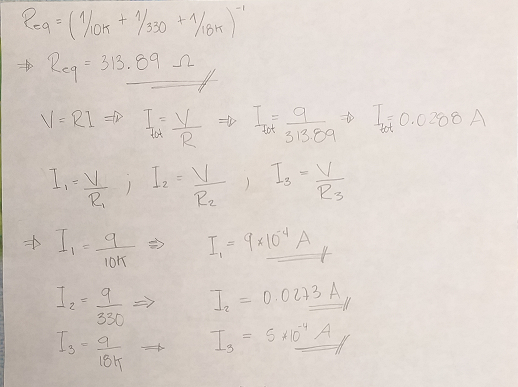 Req = (1/10K + 1/330 + 1/18K)^-1
⇒ Req = 313.89 Ω
V = RI ⇒ Itot = V/R ⇒ Itot = 9/313.89 ⇒ Itot = 0.0288 A
I1 = V/R1 ; I2 = V/R2 , I3 = V/R3
⇒ I1 = 9/10K ⇒ I1 = 9*10^-4 A
I2 = 9/330 ⇒ I2 = 0.0273 A
I3 = 9/18K ⇒ I3 = 5*10^-4 A